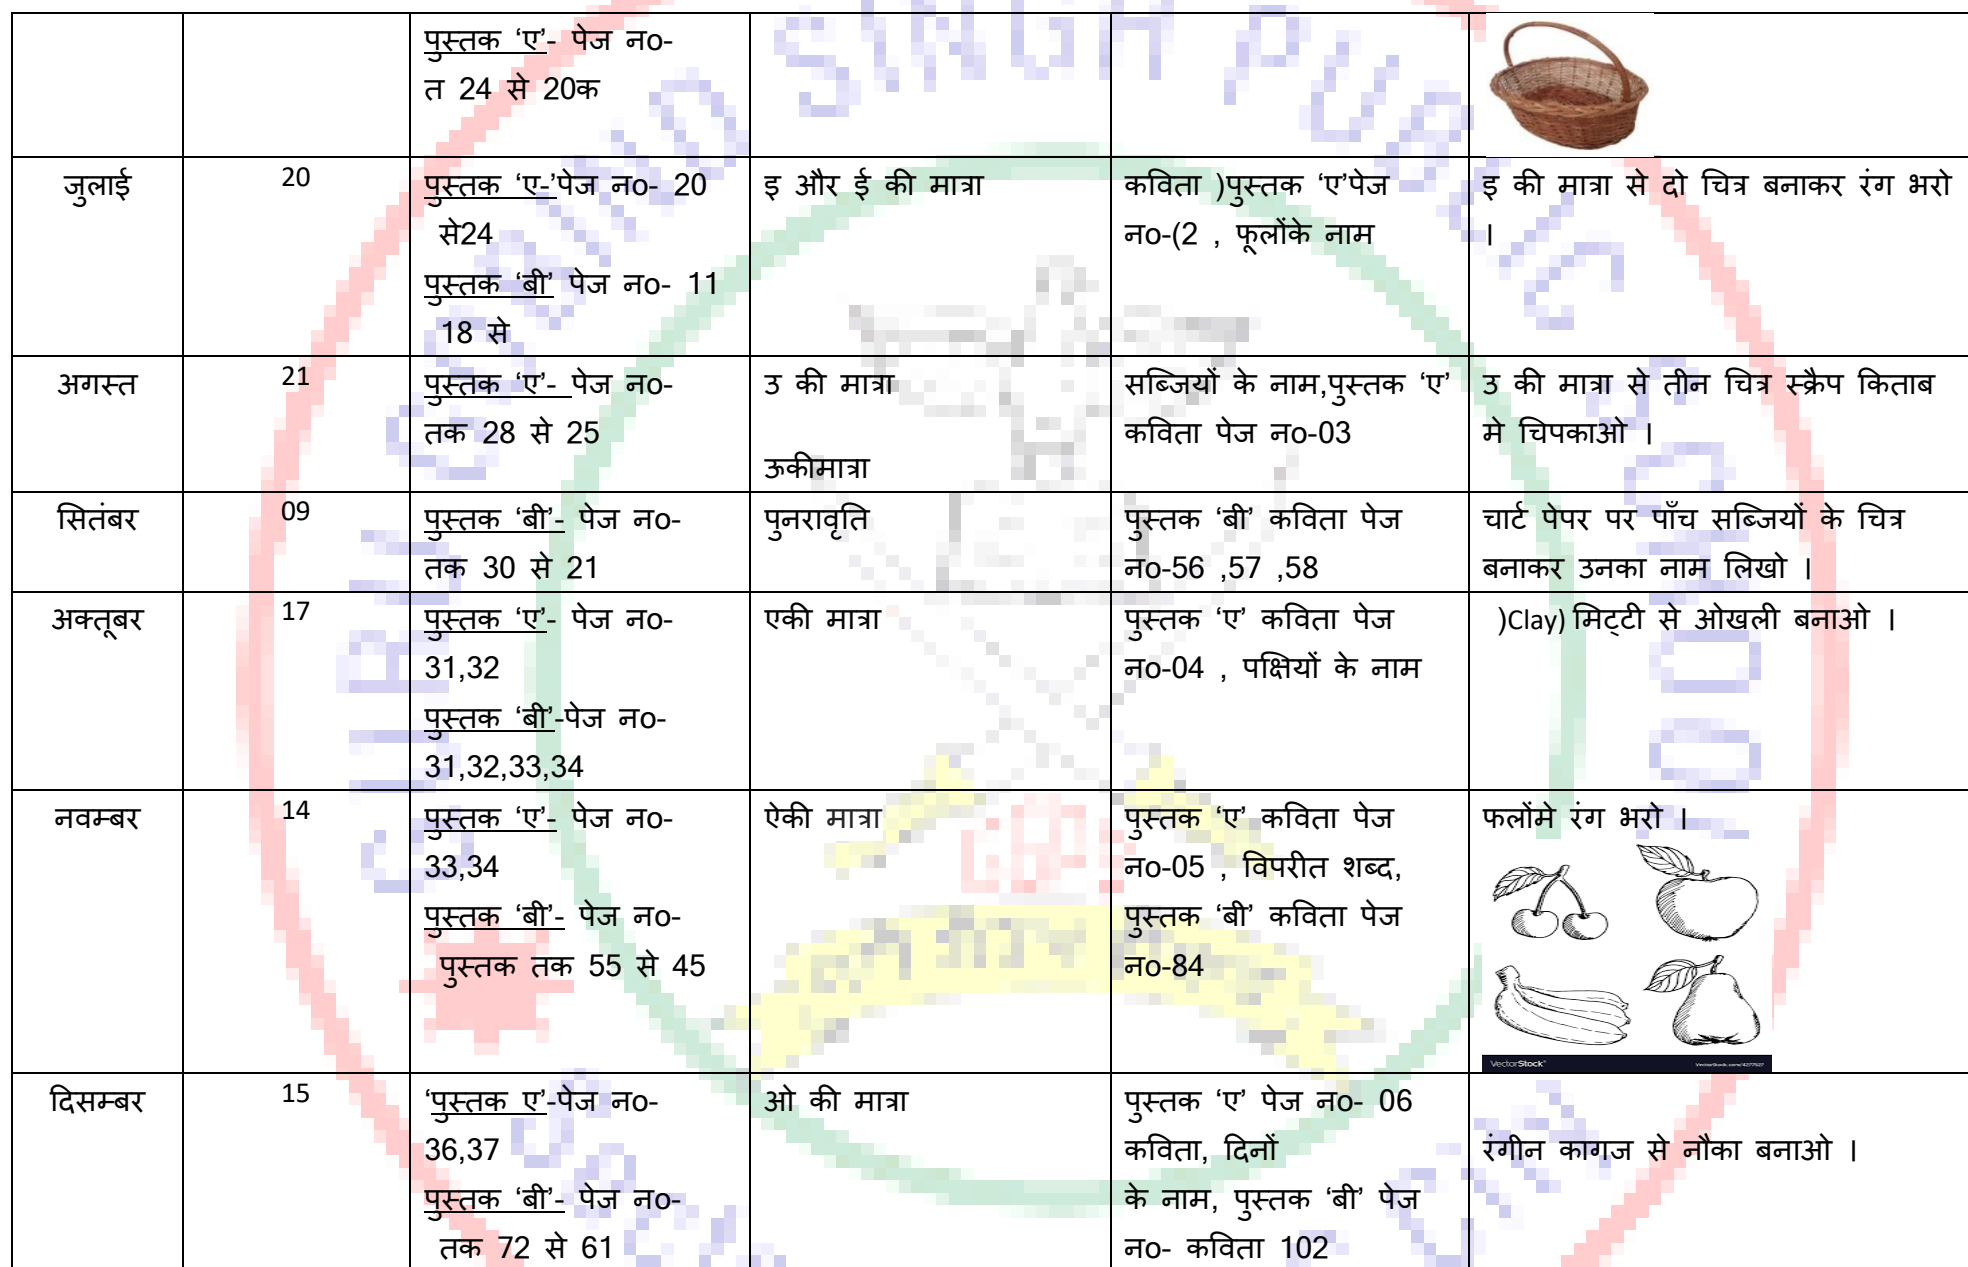 पुस्तक ‘ए’- पेज न०-
त 24 से 20क
जुलाई
20
पुस्तक ‘ए-’पेज न०- 20
से24
पुस्तक ‘बी’ पेज न०- 11
18 से
इ और ई की मात्रा
कविता )पुस्तक ‘ए’पेज
न०-(2 , फूलोंके नाम
इ की मात्रा से दो चित्र बनाकर रंग भरो
।
अगस्त
21
पुस्तक ‘ए’- पेज न०-
तक 28 से 25
उ की मात्रा
ऊकीमात्रा
सब्जियों के नाम,पुस्तक ‘ए’
कविता पेज न०-03
उ की मात्रा से तीन चित्र स्क्रैप किताब
मे चिपकाओ ।
सितंबर
09
पुस्तक ‘बी’- पेज न०-
तक 30 से 21
पुनरावृति
पुस्तक ‘बी’ कविता पेज
न०-56 ,57 ,58
चार्ट पेपर पर पाँच सब्जियों के चित्र
बनाकर उनका नाम लिखो ।
अक्तूबर
17
पुस्तक ‘ए’- पेज न०-
31,32
पुस्तक ‘बी’-पेज न०-
31,32,33,34
एकी मात्रा
पुस्तक ‘ए’ कविता पेज
न०-04 , पक्षियों के नाम
)Clay) मिट्टी से ओखली बनाओ ।
नवम्बर
14
पुस्तक ‘ए’- पेज न०-
33,34
पुस्तक ‘बी’- पेज न०-
पुस्तक तक 55 से 45
ऐकी मात्रा
पुस्तक ‘ए’ कविता पेज
न०-05 , विपरीत शब्द,
पुस्तक ‘बी’ कविता पेज
न०-84
फलोंमे रंग भरो ।
VectorStock
दिसम्बर
15
‘पुस्तक ए’-पेज न०-
36,37
पुस्तक ‘बी’- पेज न०-
तक 72 से 61
ओ की मात्रा
पुस्तक ‘ए’ पेज न०- 06
कविता, दिनों
के नाम, पुस्तक ‘बी’ पेज
न०- कविता 102
रंगीन कागज से नौका बनाओ ।